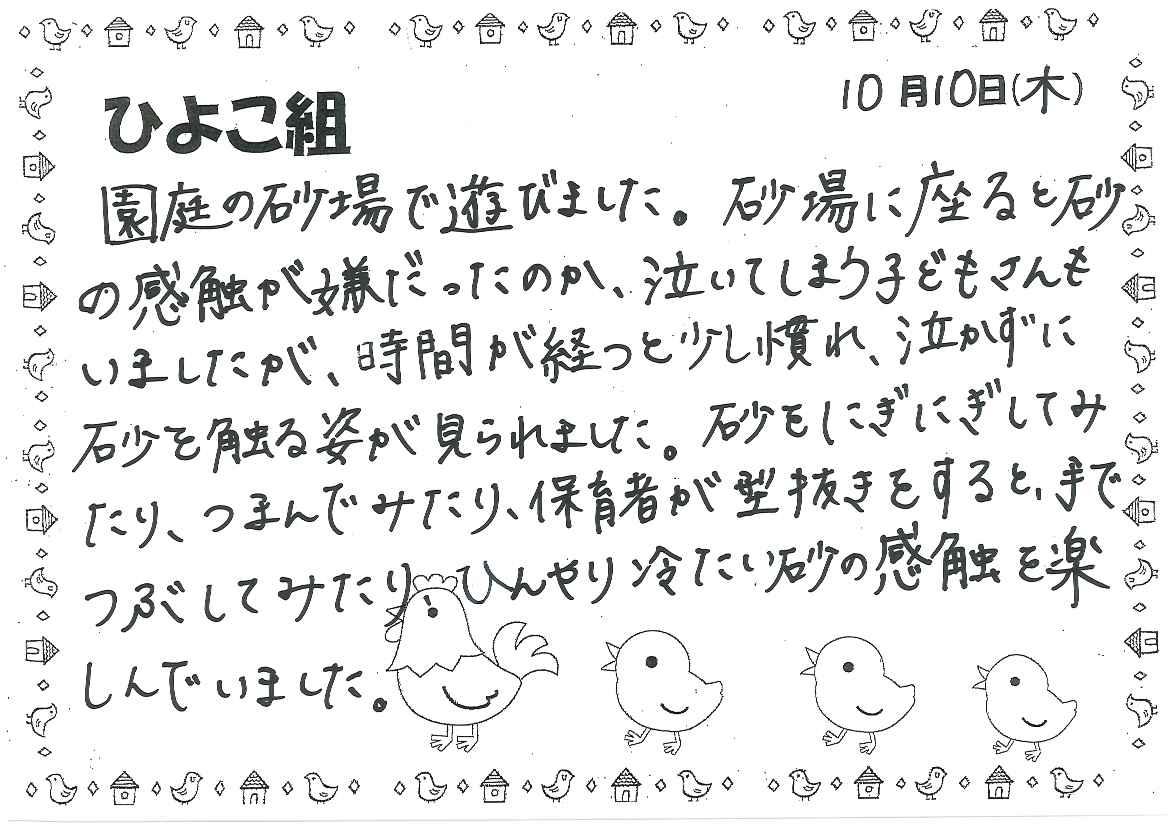 10月10日(木)
ひよこ組
園庭の砂場で遊びました。砂場に座ると砂
の感触が嫌だったのか、泣いてしまう子どもさんも
いましたが、時間が経つと少し慣れ、泣かずに
砂を触る姿が見られました。砂をにぎにぎしてみ
たり、つまんでみたり、保育者が型抜きをすると、手で
つぶしてみたり、ひんやり冷たい砂の感触を楽
しんでいました。